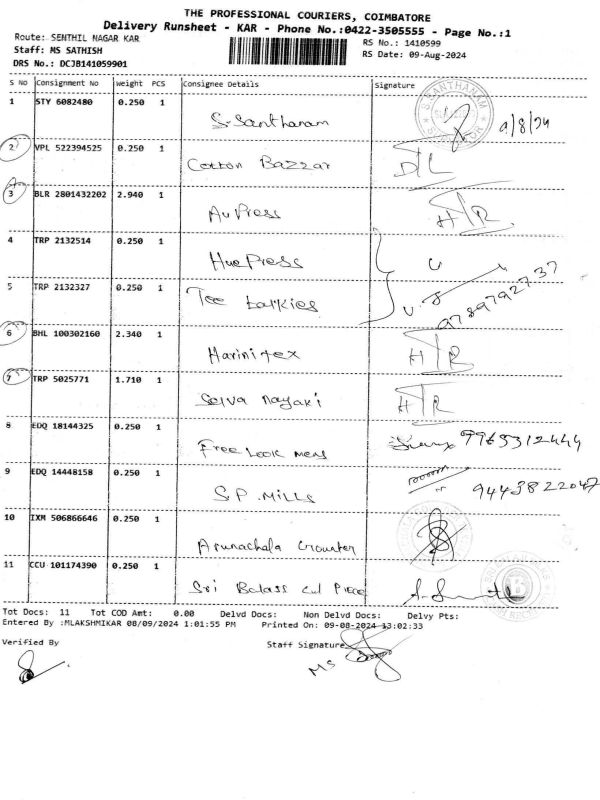 THE PROFESSIONAL COURIERS, COIMBATORE
Delivery Runsheet - KAR - Phone No.:0422-3505555 - Page No.:1
Route: SENTHIL NAGAR KAR
RS No.: 1410599
Staff: MS SATHISH
RS Date: 09-Aug-2024
DRS No.: DCJB141059901
S NO Consignment No Weight PCS Consignee Details Signature
1 STY 6082480 0.250 1 S. Santhanam 9/8/24
2 VPL 522394525 0.250 1 Cotton Bazzar D/L
3 BLR 2801432202 2.940 1 Au Press H/R.
4 TRP 2132514 0.250 1 Hue Press
5 TRP 2132327 0.250 1 Tee 9789792737
6 BHL 100302160 2.340 1 Harini tex H/R
7 TRP 5025771 1.710 1 Selva Nayaki H/R
8 EDQ 18144325 0.250 1 Free Look mens 9965312444
9 EDQ 14448158 0.250 1 S.P. MILLS 9443822047
10 IXM 506866646 0.250 1 Arunachala Grounter
11 CCU 101174390 0.250 1 Sri Balass Cut Piece
Tot Docs: 11 Tot COD Amt: 0.00 Delvd Docs: Non Delvd Docs: Delvy Pts:
Entered By :MLAKSHMIKAR 08/09/2024 1:01:55 PM Printed On: 09-08-2024 13:02:33
Verified By
Staff Signature
MS